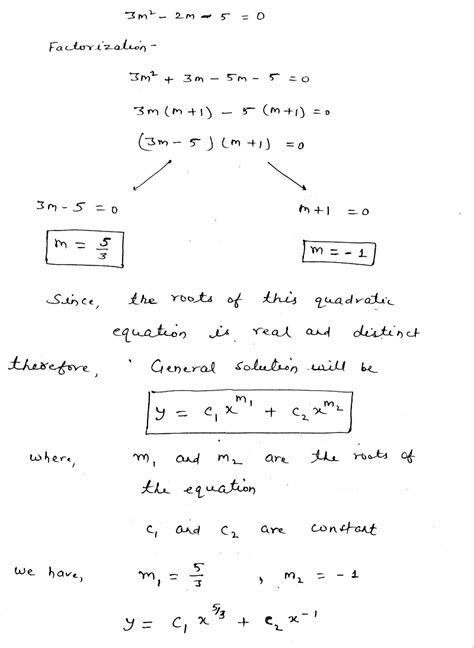 3m² - 2m - 5 = 0
Factorization -
3m² + 3m - 5m - 5 = 0
3m (m+1) - 5 (m+1) = 0
(3m - 5) (m+1) = 0
3m - 5 = 0 m+1 = 0
m = 5/3 m = -1
Since, the roots of this quadratic
equation is real and distinct
therefore, General solution will be
y = c₁ x^m₁ + c₂ x^m₂
where, m₁ and m₂ are the roots of
the equation
c₁ and c₂ are constant
we have, m₁ = 5/3 , m₂ = -1
y = c₁ x^5/3 + c₂ x^-1